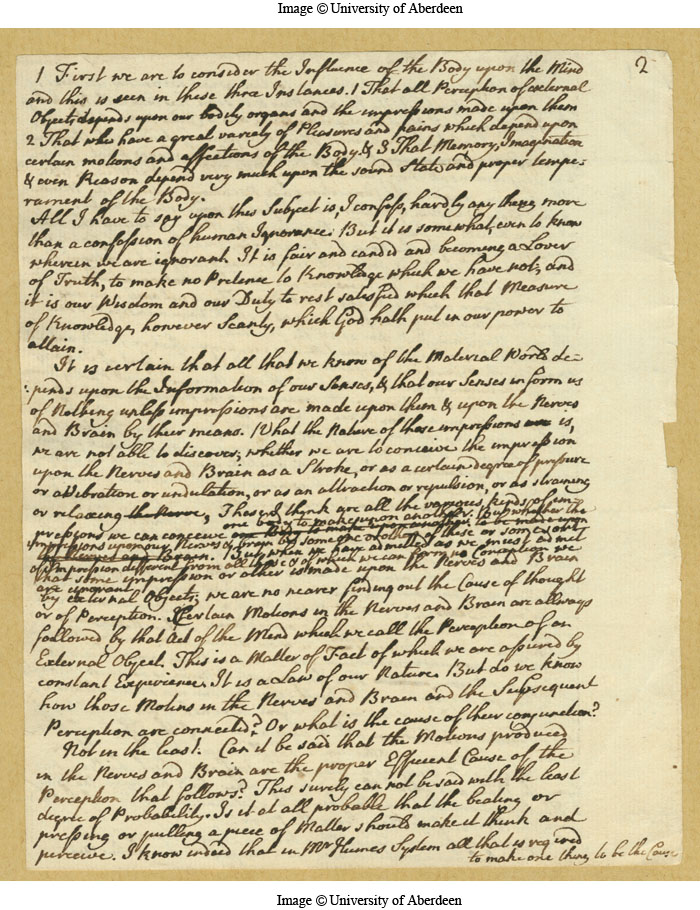 Image © University of Aberdeen
2
1 First we are to consider the Influence of the Body upon the Mind
and this is seen in these three Instances. 1 That all Perception of external
Objects depends upon our bodily organs and the impressions made upon them
2 That who have a great variety of Pleasures and pains which depend upon
certain motions and affections of the Body. & 3 That Memory, Imagination
& even Reason depend very much upon the sound State and proper tempe-
rament of the Body.
All I have to say upon this Subject is, I confess, hardly any thing more
than a confession of human Ignorance. But it is somewhat even to know
wherein we are ignorant. It is fair and candid and becoming a Lover
of Truth, to make no Pretence to Knowledge which we have not, and
it is our Wisdom and our Duty to rest satisfied which that Measure
of Knowledge, however Scanty, which God hath put in our power to
attain.
It is certain that all that we know of the Material World de-
pends upon the Information of our Senses, & that our Senses inform us
of Nothing unless impressions are made upon them & upon the Nerves
and Brain by their means. What the Nature of these impressions is,
we are not able to discover, whether we are to conceive the impression
upon the Nerves and Brain as a Stroke, or as a certain degree of pressure
or a Vibration or undulation, or as an attraction or repulsion, or as straining
or relaxing the Nerve, These I think are all the various kinds of im-
pressions we can conceive one body to make upon another. But whether the
impressions upon our Nerves & brain be some one or other of these or some sort
of impression different from all those & of which we can form no conception we
are ignorant
But when we have admitted as we must admit
that some impression or other is made upon the Nerves and Brain
by external Objects; we are no nearer finding out the Cause of thought
or of Perception. Certain Motions in the Nerves and Brain are allways
followed by that Act of the Mind which we call the Perception of an
External Object. This is a Matter of Fact of which we are assured by
constant Experience. It is a Law of our Nature. But do we know
how those Motions in the Nerves and Brain and the Subsequent
Perception are connected? Or what is the cause of their conjunction?
Not in the least. Can it be said that the Motions produced
in the Nerves and Brain are the proper Efficient Cause of the
Perception that follows? This surely can not be said with the least
degree of Probability. Is it at all probable that the beating or
pressing or pulling a piece of Matter should make it think and
perceive. I know indeed that in Mr Humes System all that is reqired
to make one thing to be the Cause
Image © University of Aberdeen